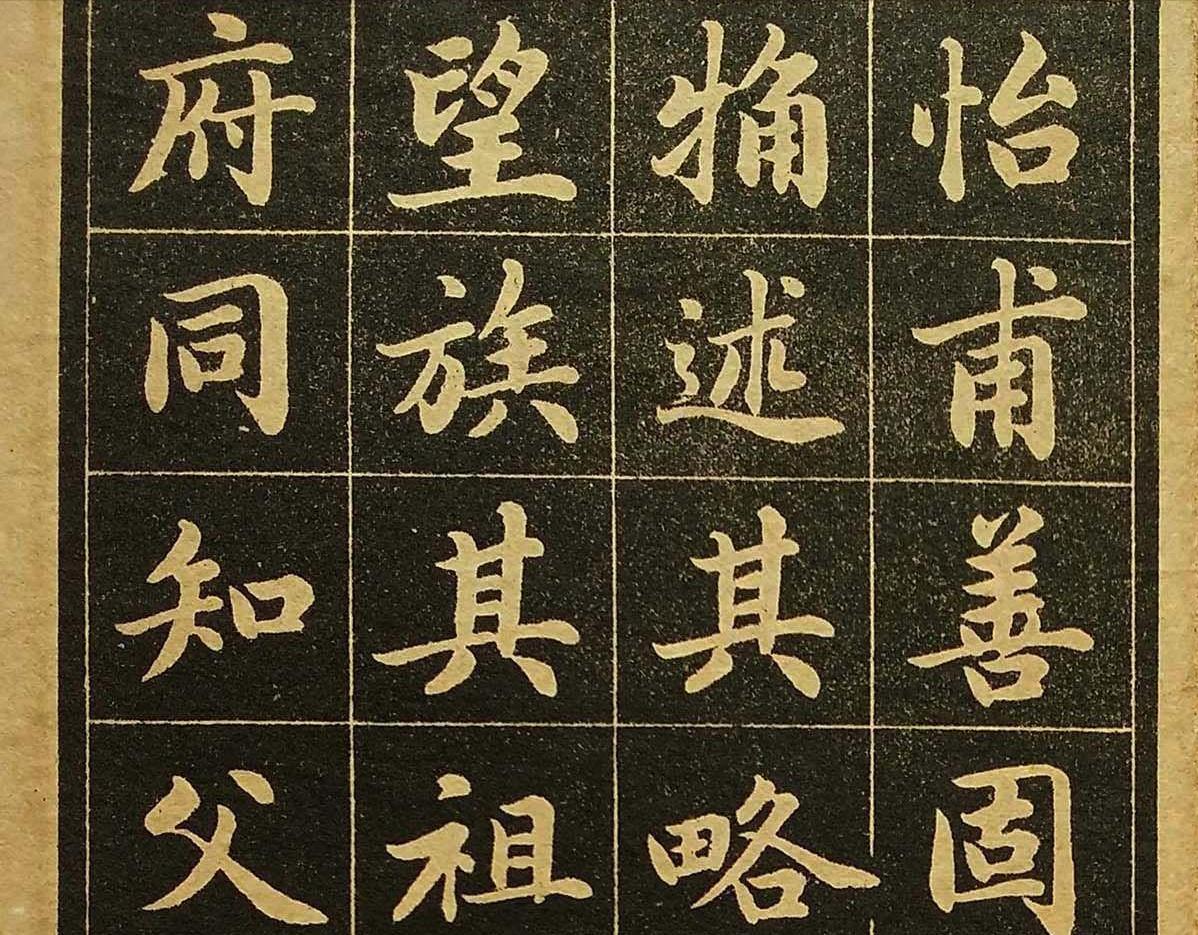 怡甫善固
觕述其略
望族其祖
府同知父